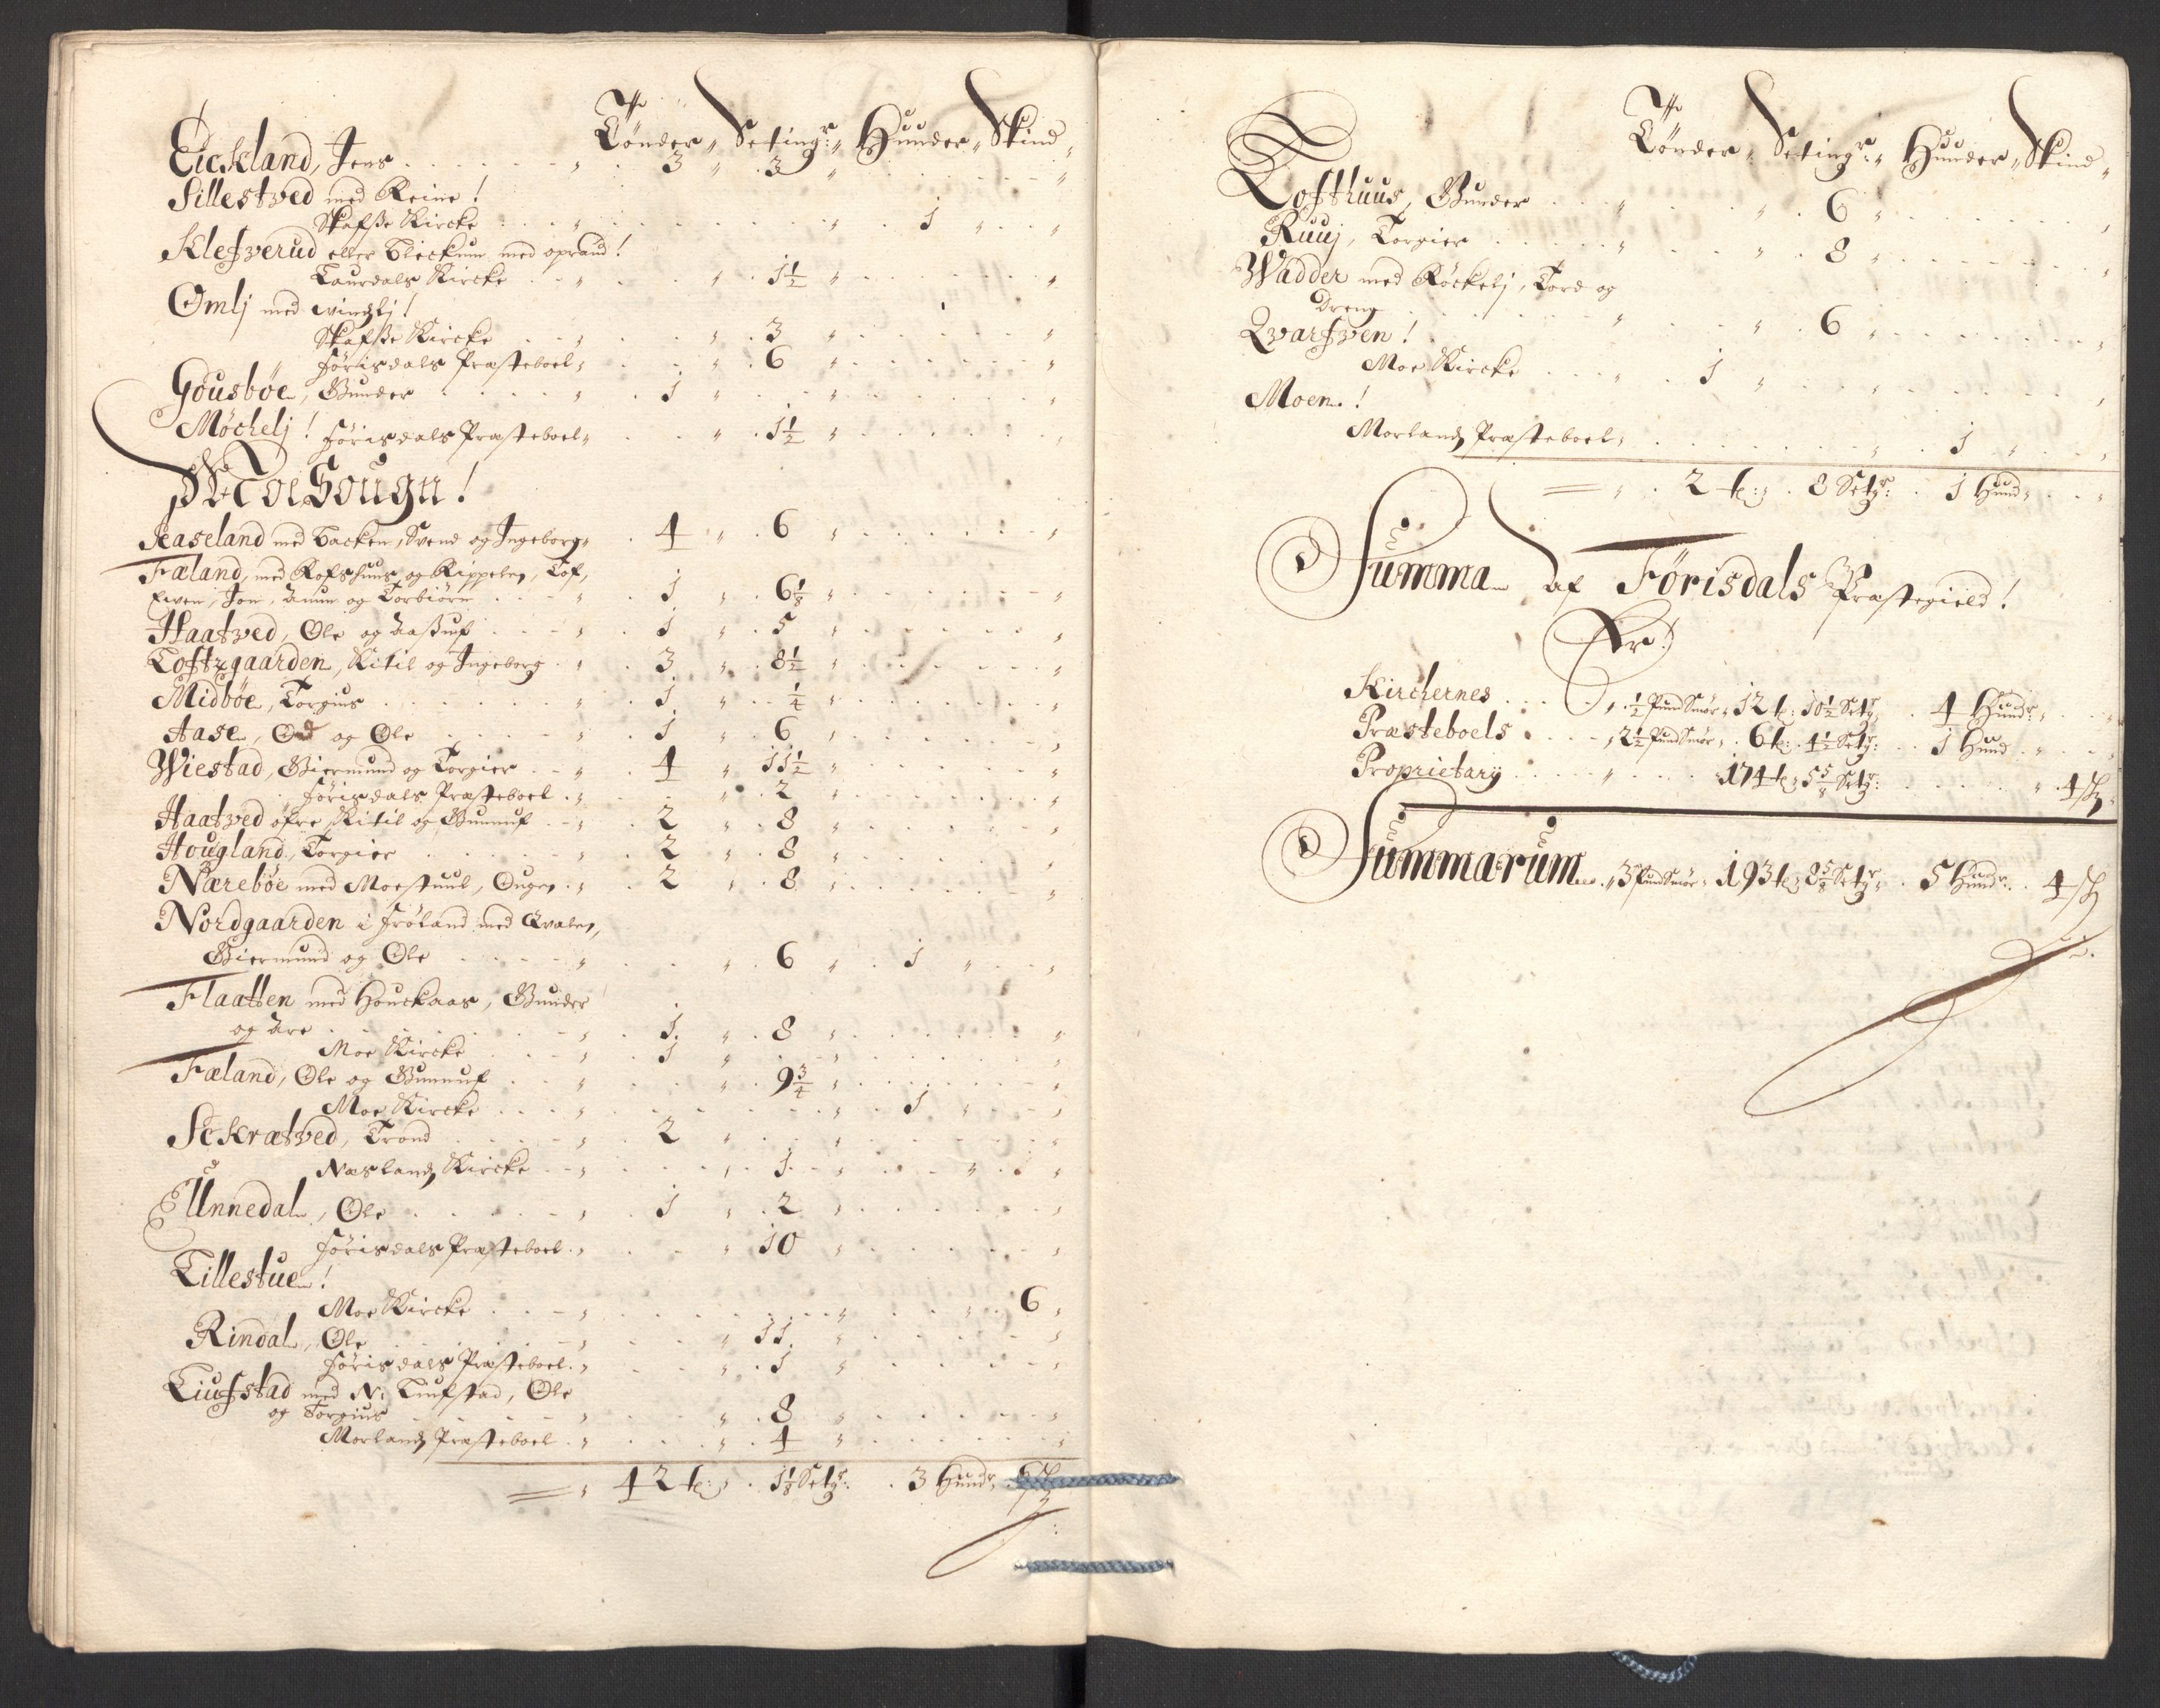 Tønder, Setingr: Hunder, Skind
Eickland, Jens 3 3
Sillestved med Reine!
Skafsse Kircke 1
Klefverud eller Bleckum med oprand!
Laurdals Kircke 1 1/2
Omlj med vindlj!
Skafsse Kircke 3
Førisdals Præsteboel 6
Gousbøe, Gunder 1
Møchelj! Førisdals Præsteboel 1 1/2
Moe Sougn!
Raseland med Backen, Svend og Ingeborg 4 6
Fæland, med Rofshuus og Rippelen, Tof,
Even, Jon, Anun og Torbiørn 1 6 1/8
Haatved, Ole og Aassuf 1 5
Toftzgaarden, Kitil og Ingeborg 3 8 1/2
Midbøe, Torgius 1 1/4
Aase, Od og Ole 1 6
Wiestad, Giermund og Torgier 4 11 1/2
Førisdals Præsteboel 2
Haatved øfre, Kitil og Gunnuf 2 8
Hougland, Torgier 2 8
Nærebøe med Moestuul, Ougen 2 8
Nordgaarden i Frøland med Qvalen,
Giermund og Ole 6 1
Flaatten med Houckaas, Gunder
og Are 1 8
Moe Kircke 1
Fæland, Ole og Gunnuf 9 3/4
Moe Kircke 1
Sckrætved, Trond 2
Næsland Kircke 1
Unnedal, Ole 1 2
Førisdals Præsteboel 10
Lillestue!
Moe Kircke 6
Rindal, Ole 11
Førisdals Præsteboel 1
Liufstad med N: Liufstad, Ole
og Torgius 8
Morlands Præsteboel 4
42 t: 1 1/8 Setgr: 3 Hundr 6 sk
Tønder, Setingr: Hunder, Skind
Lofthuus, Gunder 6
Ruuj, Torgier 8
Wadder med Røckelj, Tord og
Dreng 6
Qvarfven!
Moe Kircke 1
Moen!
Morlands Præsteboel 1
2 t: 8 Setgr: 1 Hund
Summa af Førisdals Præstegield!
Er!
Kirchernes 1/2 Pund Smør 12 t: 10 1/2 Setgr 4 Hundr
Præsteboels 2 1/2 Pund Smør 6 t: 4 1/2 Setgr: 1 Hund
Proprietary 174 t: 5 5/8 Setgr: 4 sk
Summarum 3 Pund Smør 193 t: 8 5/8 Setgr 5 Hundr 4 sk